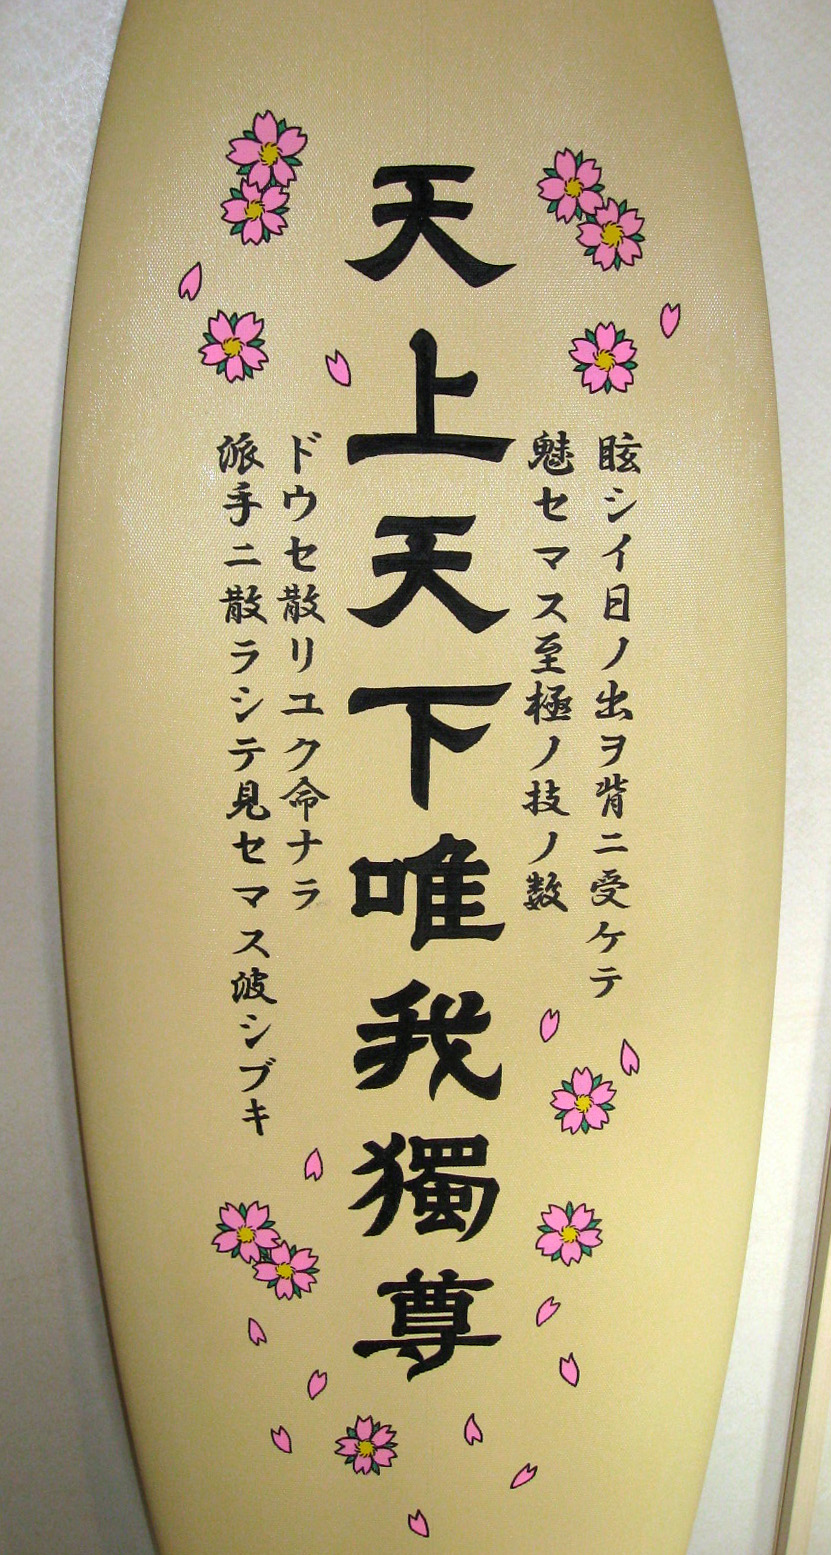 眩シイ日ノ出ヲ背ニ受ケテ
魅セマス至極ノ技ノ数
天上天下唯我獨尊
ドウセ散リユク命ナラ
派手ニ散ラシテ見セマス波シブキ